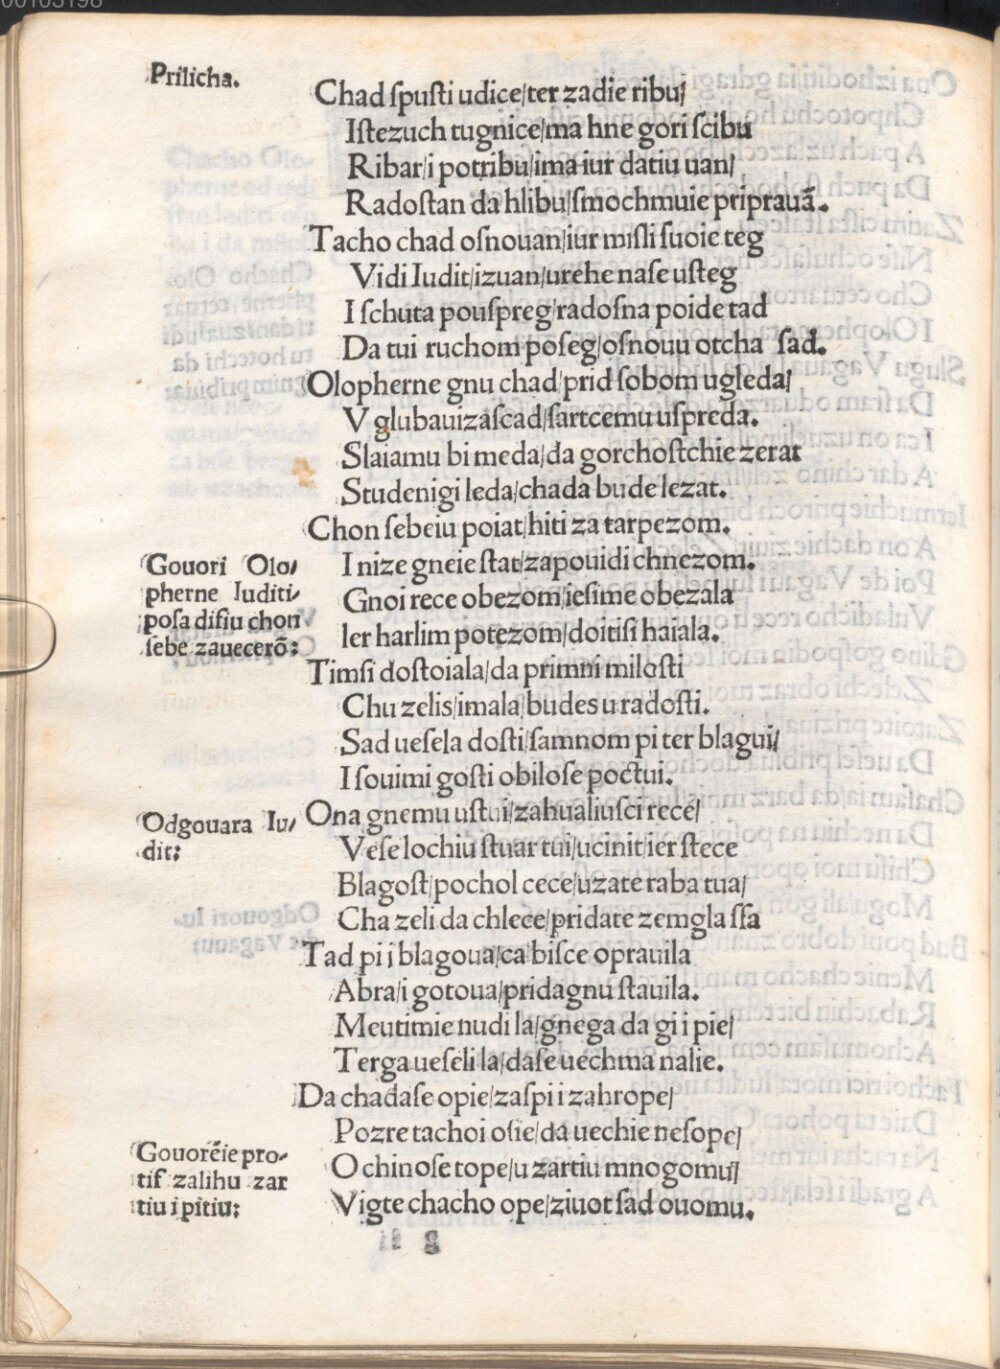 00103198
Prilicha.
Chad ſpuſti udice/ter zadie ribu/
Iſtezuch tugnice/ma hne gori ſcibu
Ribar/i potribu/ima iur datiu uan/
Radoſtan da hlibu/ſmochmuie priprauā.
Tacho chad oſnouan/iur miſli ſuoie teg
Vidi Iudit/izuan/urehe naſe uſteg
I ſchuta pouſpreg/radoſna poide tad
Da tui ruchom poſeg/oſnouu otcha ſad.
Olopherne gnu chad/prid ſobom ugleda/
V glubauizaſcad/ſartcemu uſpreda.
Slaiamu bi meda/da gorchoſtchie zerat
Studenigi leda/chada bude lezat.
Chon ſebeiu poiat/hiti za tarpezom.
I nize gneie ſtat/zapouidi chnezom.
Gnoi rece obezom/ieſime obezala
Ier harlim potezom/doitiſi haiala.
Gouori Olo/
pherne Iuditi/
poſa diſiu chon
ſebe zauecerō:
Timſi doſtoiala/da primni miloſti
Chu zelis/imala/budes u radoſti.
Sad ueſela doſti/ſamnom pi ter blagui/
I ſouimi goſti obiloſe poctui.
Ona gnemu uſtui/zahualiuſci rece/
Odgouara Iu/
dit:
Veſe lochiu ſtuar tui/ucinit/ier ſtece
Blagoſt/pochol cece/uzate raba tua/
Cha zeli da chlece/pridate zemgla ſſa
Tad pi i blagoua/ca biſce oprauila
Abra/i gotoua/pridagnu ſtauila.
Meutimie nudi la/gnega da gi i pie/
Terga ueſeli la/daſe uechma nalie.
Da chadaſe opie/zaſpi i zahrope/
Pozre tachoi oſie/da uechie neſope/
O chinoſe tope/u zartiu mnogomu/
Vigte chacho ope/ziuot ſad ouomu.
Gouorēie pro-
tif zalihu zar
tiu i pitiu: